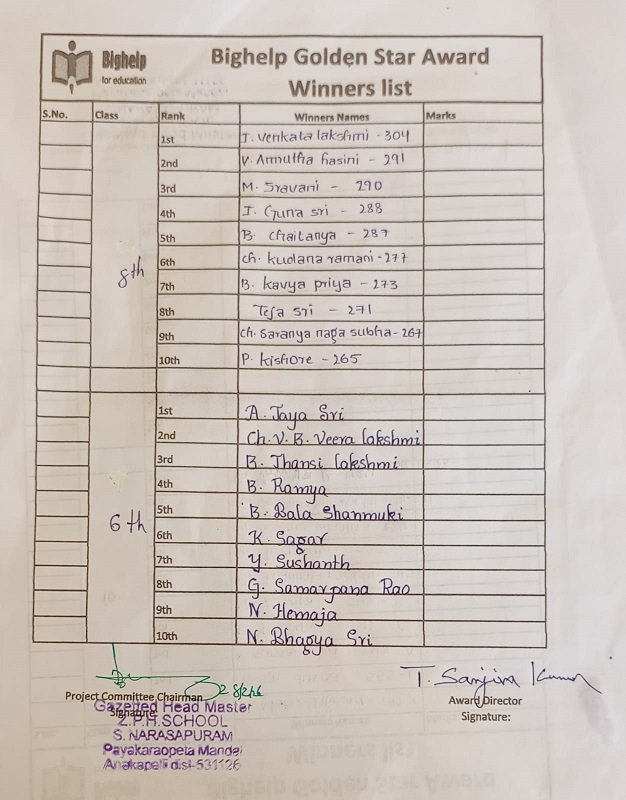 Bighelp
for education
Bighelp Golden Star Award
Winners list
S.No. Class Rank Winners Names Marks
8th
1st I. Venkata lakshmi - 304
2nd V. Amrutha hasini - 291
3rd M. Sravani - 290
4th I. Guna sri - 288
5th B. Chaitanya - 287
6th ch. kudana ramani - 277
7th B. kavya priya - 273
8th Teja sri - 271
9th ch. Saranya naga subha - 267
10th P. kishore - 265
6th
1st A. Jaya Sri
2nd Ch. V. B. Veera lakshmi
3rd B. Jhansi lakshmi
4th B. Ramya
5th B. Bala Shanmuki
6th K. Sagar
7th Y. Sushanth
8th G. Samarpana Rao
9th N. Hemaja
10th N. Bhagya Sri
T. Sanjiva Kumar
Project Committee Chairman
Signature:
Award Director
Signature:
Gazetted Head Master
Z.P.H. SCHOOL
S. NARASAPURAM
Payakaraopeta Mandal
Anakapalli dist-531126
Winners list
Bighelp Golden Star Award